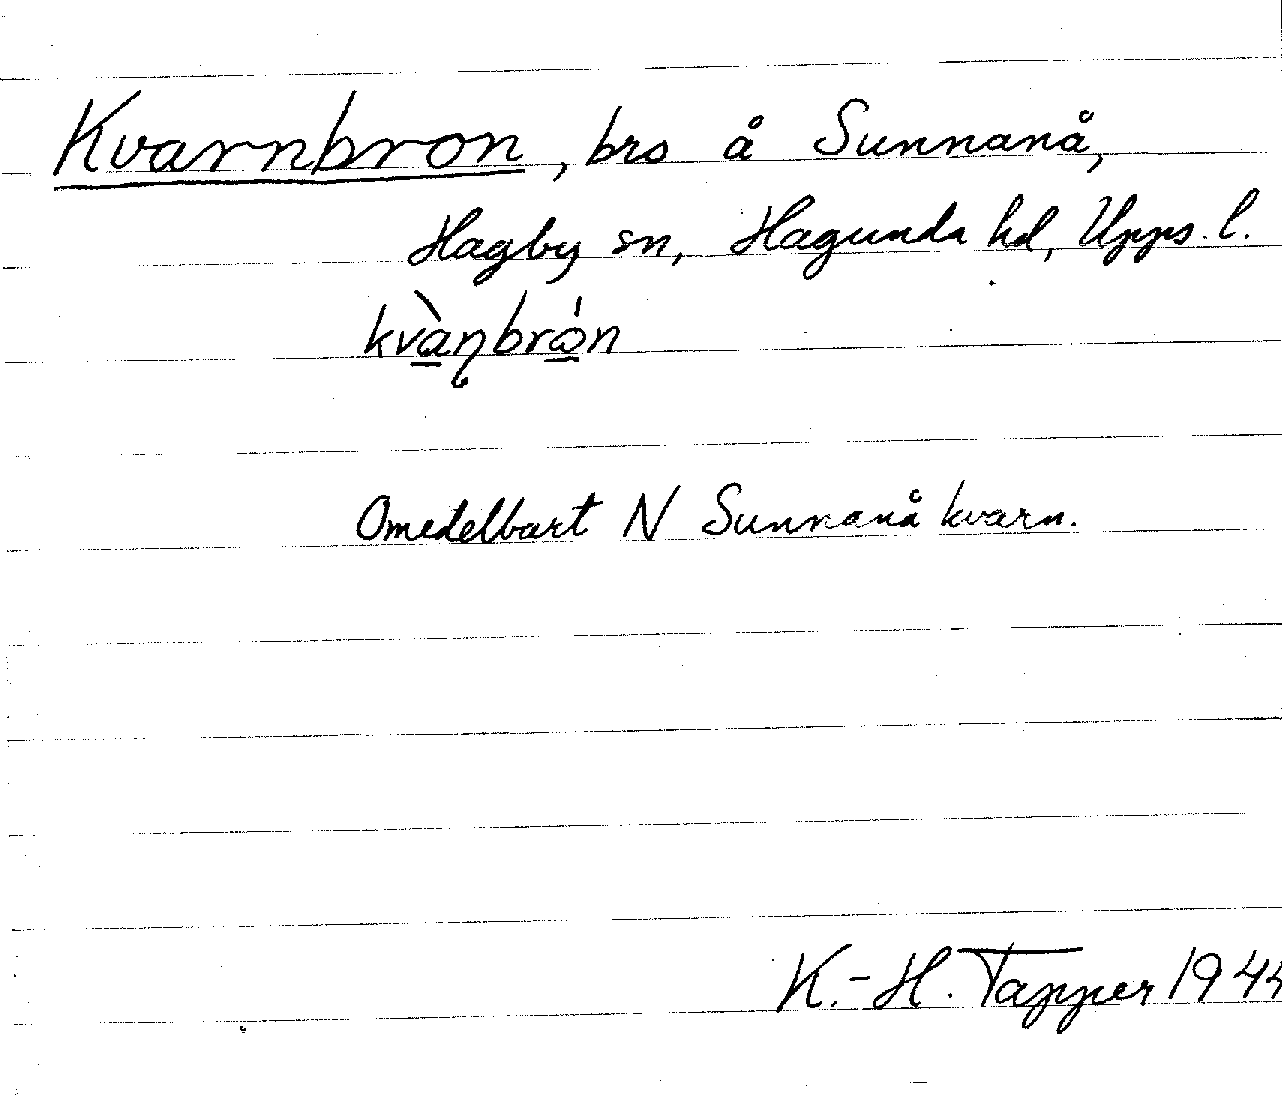 Kvarnbron, bro å Sunnanå,
Hagby sn, Hagunda hd, Upps. l.
kvàɳbrǫ́n
Omedelbart N Sunnanå kvarn.
K.-H. Tapper 1944